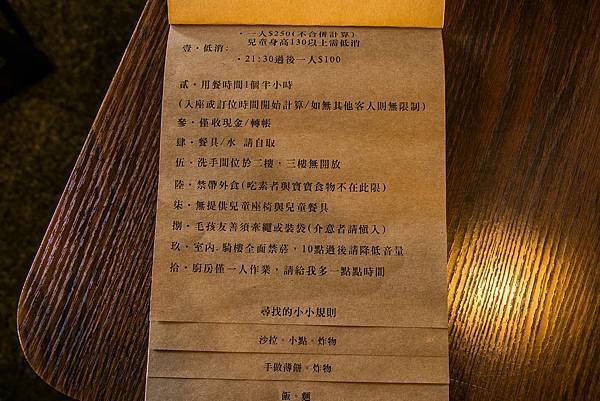 ・一人$250(不合併計算)
兒童身高130以上需低消
壹・低消:
・21:30過後一人$100
貳・用餐時間1個半小時
(入座或訂位時間開始計算/如無其他客人則無限制)
參・僅收現金/轉帳
肆・餐具/水 請自取
伍・洗手間位於二樓，三樓無開放
陸・禁帶外食(吃素者與寶寶食物不在此限)
柒・無提供兒童座椅與兒童餐具
捌・毛孩友善須牽繩或裝袋(介意者請慎入)
玖・室內.騎樓全面禁菸，10點過後請降低音量
拾・廚房僅一人作業，請給我多一點點時間
尋找的小小規則
沙拉。小點。炸物
手做薄餅。炸物
飯。麵